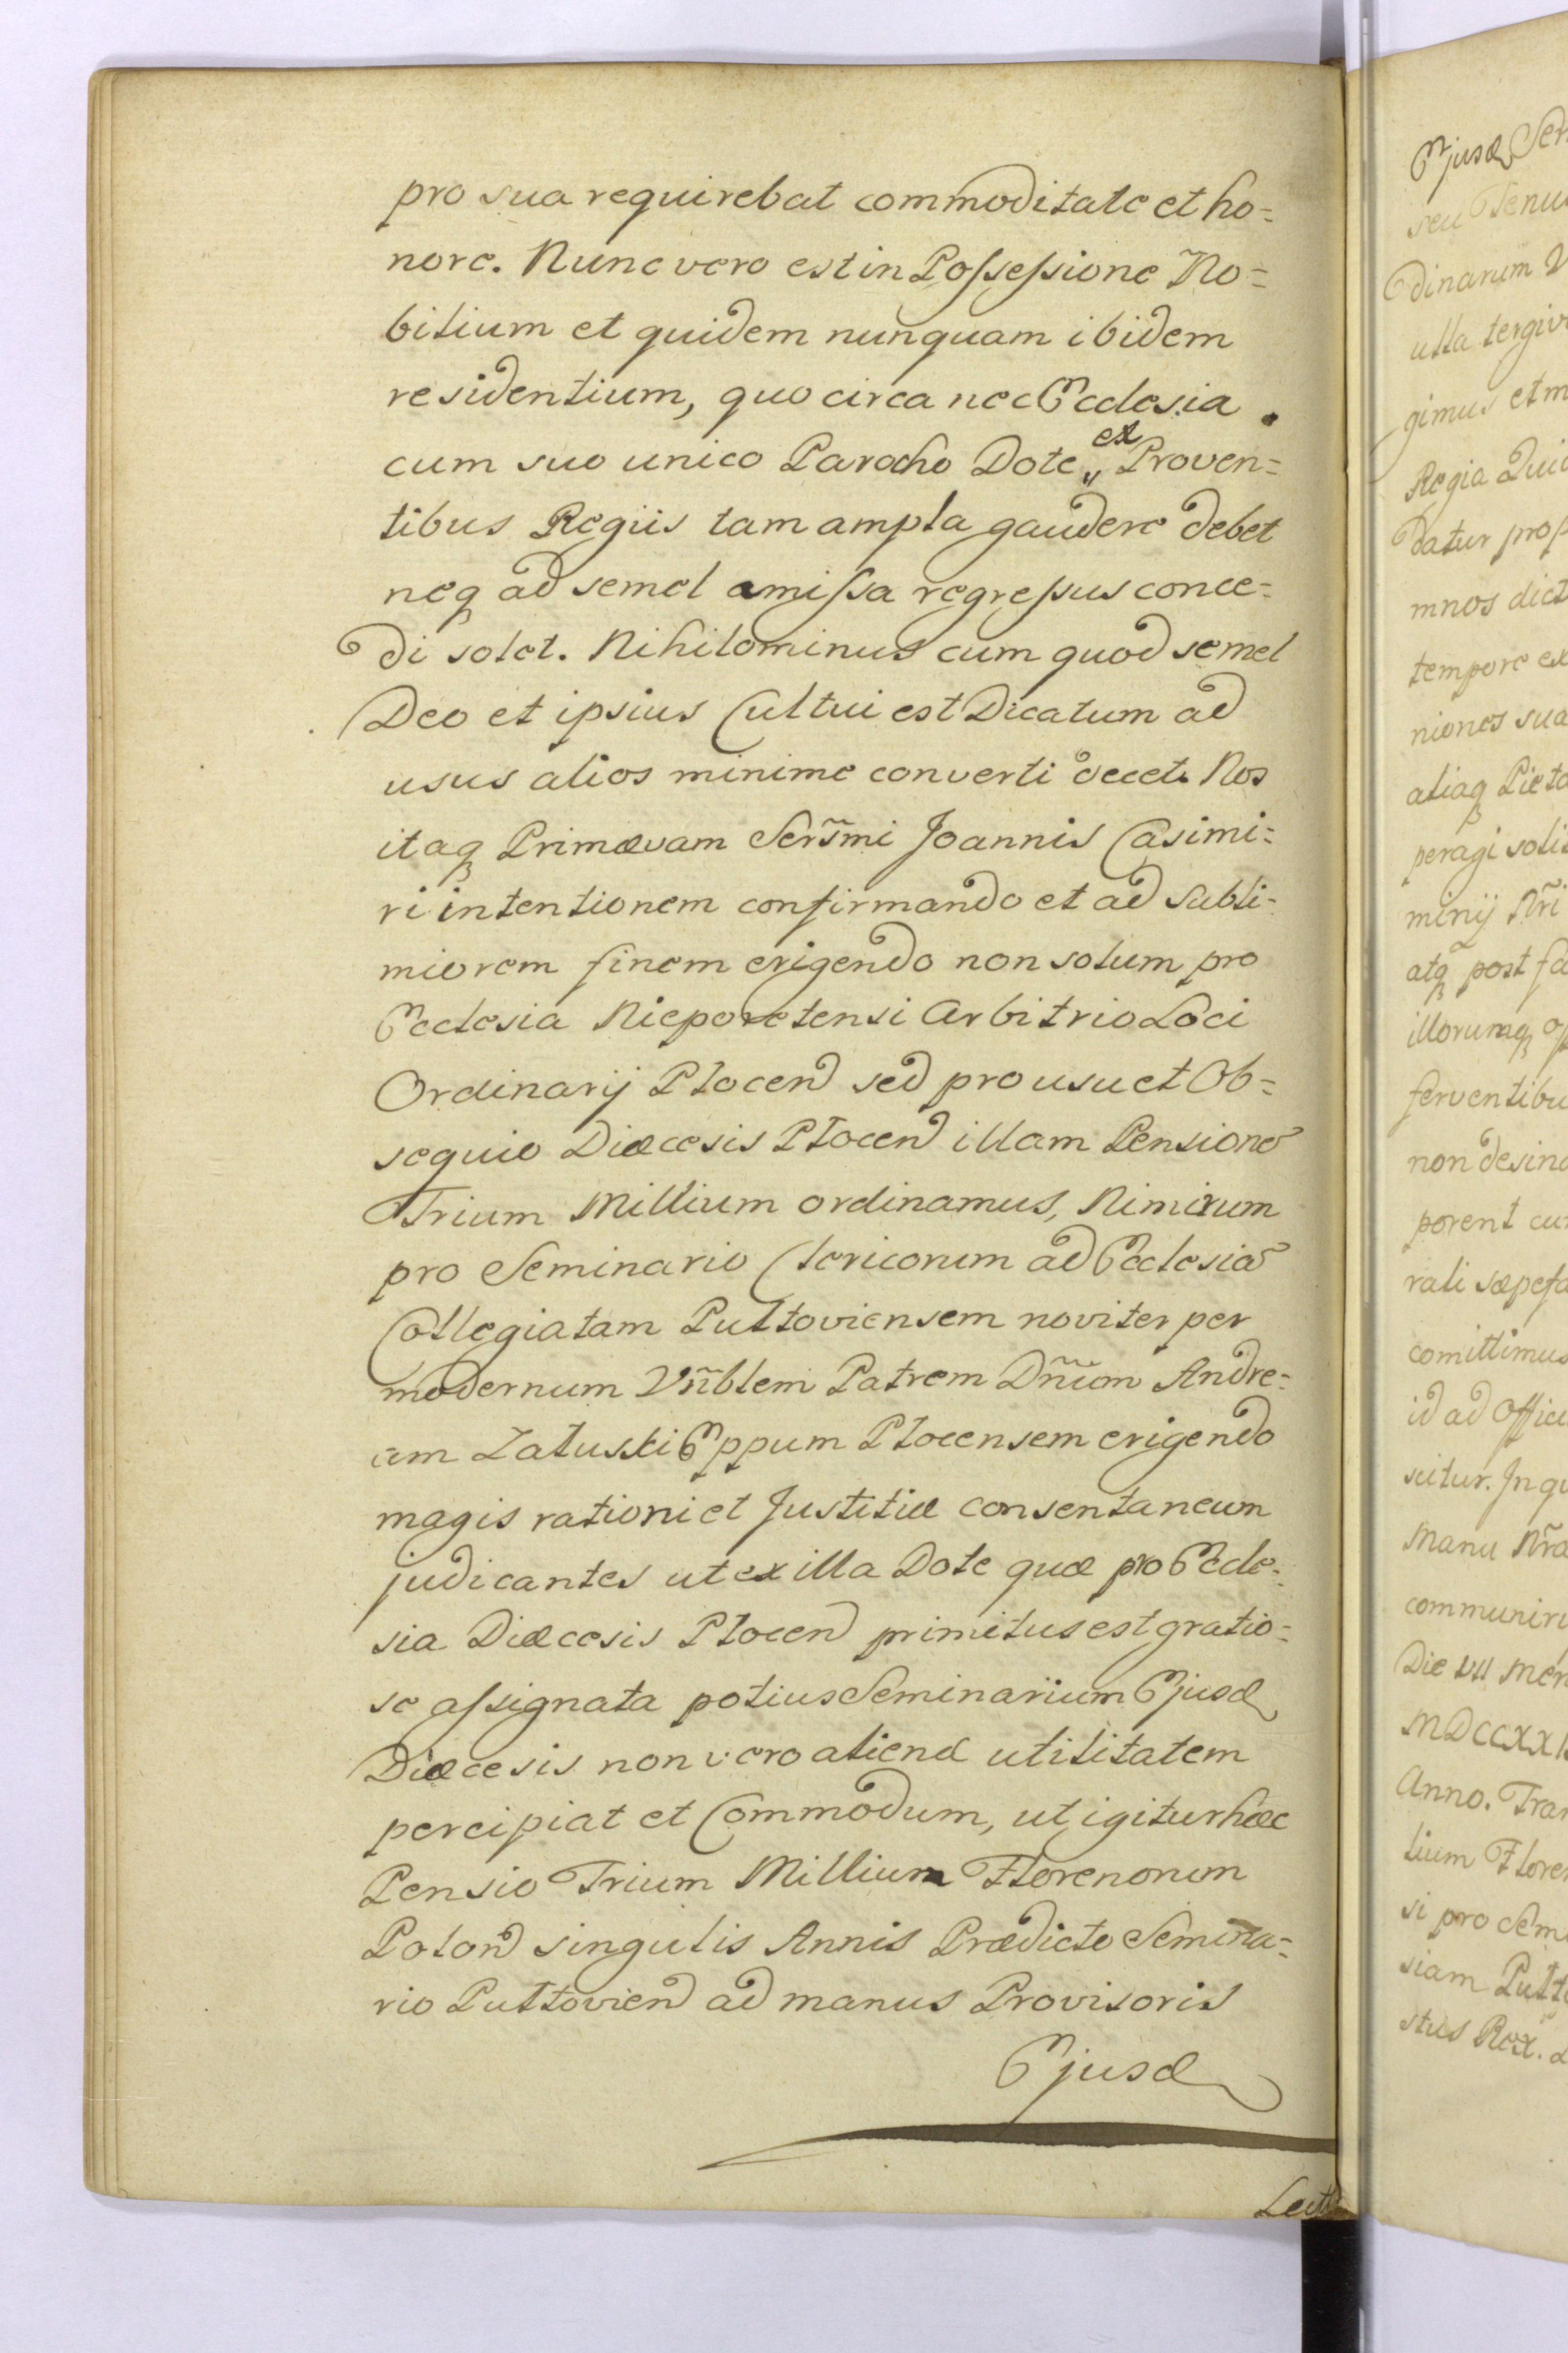 pro sua requirebat commoditate et ho=
nore. Nunc vero est in Poſseſsione No=
bilium et quidem nunquam ibidem
residentium, quo circa nec Ecclesia
cum suo unico Parocho Dote ex Proven=
tibus Regiis tam ampla gaudere debet
neq ad semel amiſsa regreſsus conce=
di solet. Nihilominus cum quod semel
Deo et ipsius Cultui est Dicatum ad
usus alios minime converti decet. Nos
itaq Primævam Serm̃i Joannis Casimi=
ri intentionem confirmando et ad Subli=
miorem finem erigendo non solum pro
Ecclesia Nieporetensi Arbitrio Loci
Ordinarij Plocen sed pro usu et Ob=
sequio Diæcesis Plocen illam Pensione
Trium Millium ordinamus, Nimirum
pro Seminario Clericorum ad Ecclesia
Collegiatam Pultoviensem noviter per
modernum Vñblem Patrem Dñum Andre=
am Zaluski Eppum Plocensem erigendo
magis rationi et Justitiæ consentaneum
judicantes ut ex illa Dote quæ pro Eccle=
sia Diæcesis Plocen primitus est gratio=
se aſsignata potius Seminarium Ejusd
Diæcesis non vero alienæ utilitatem
percipiat et Commodum, ut igitur hæc
Pensio Trium Millium Florenorum
Polon singulis Annis Prædicto Semina=
rio Pultovien ad manus Provisoris
Ejusd
Ejusd
seu
dinarum
ulla
gimus et
Regia
datur
mnos
tempore
niones sua
aliaq
peragi
minij Nr̃i
atq post
illorumq
non
porent
rati
comittimus
id ad
scitur. In
Manu
Die VII
Anno.
si pro
siam
Rex.